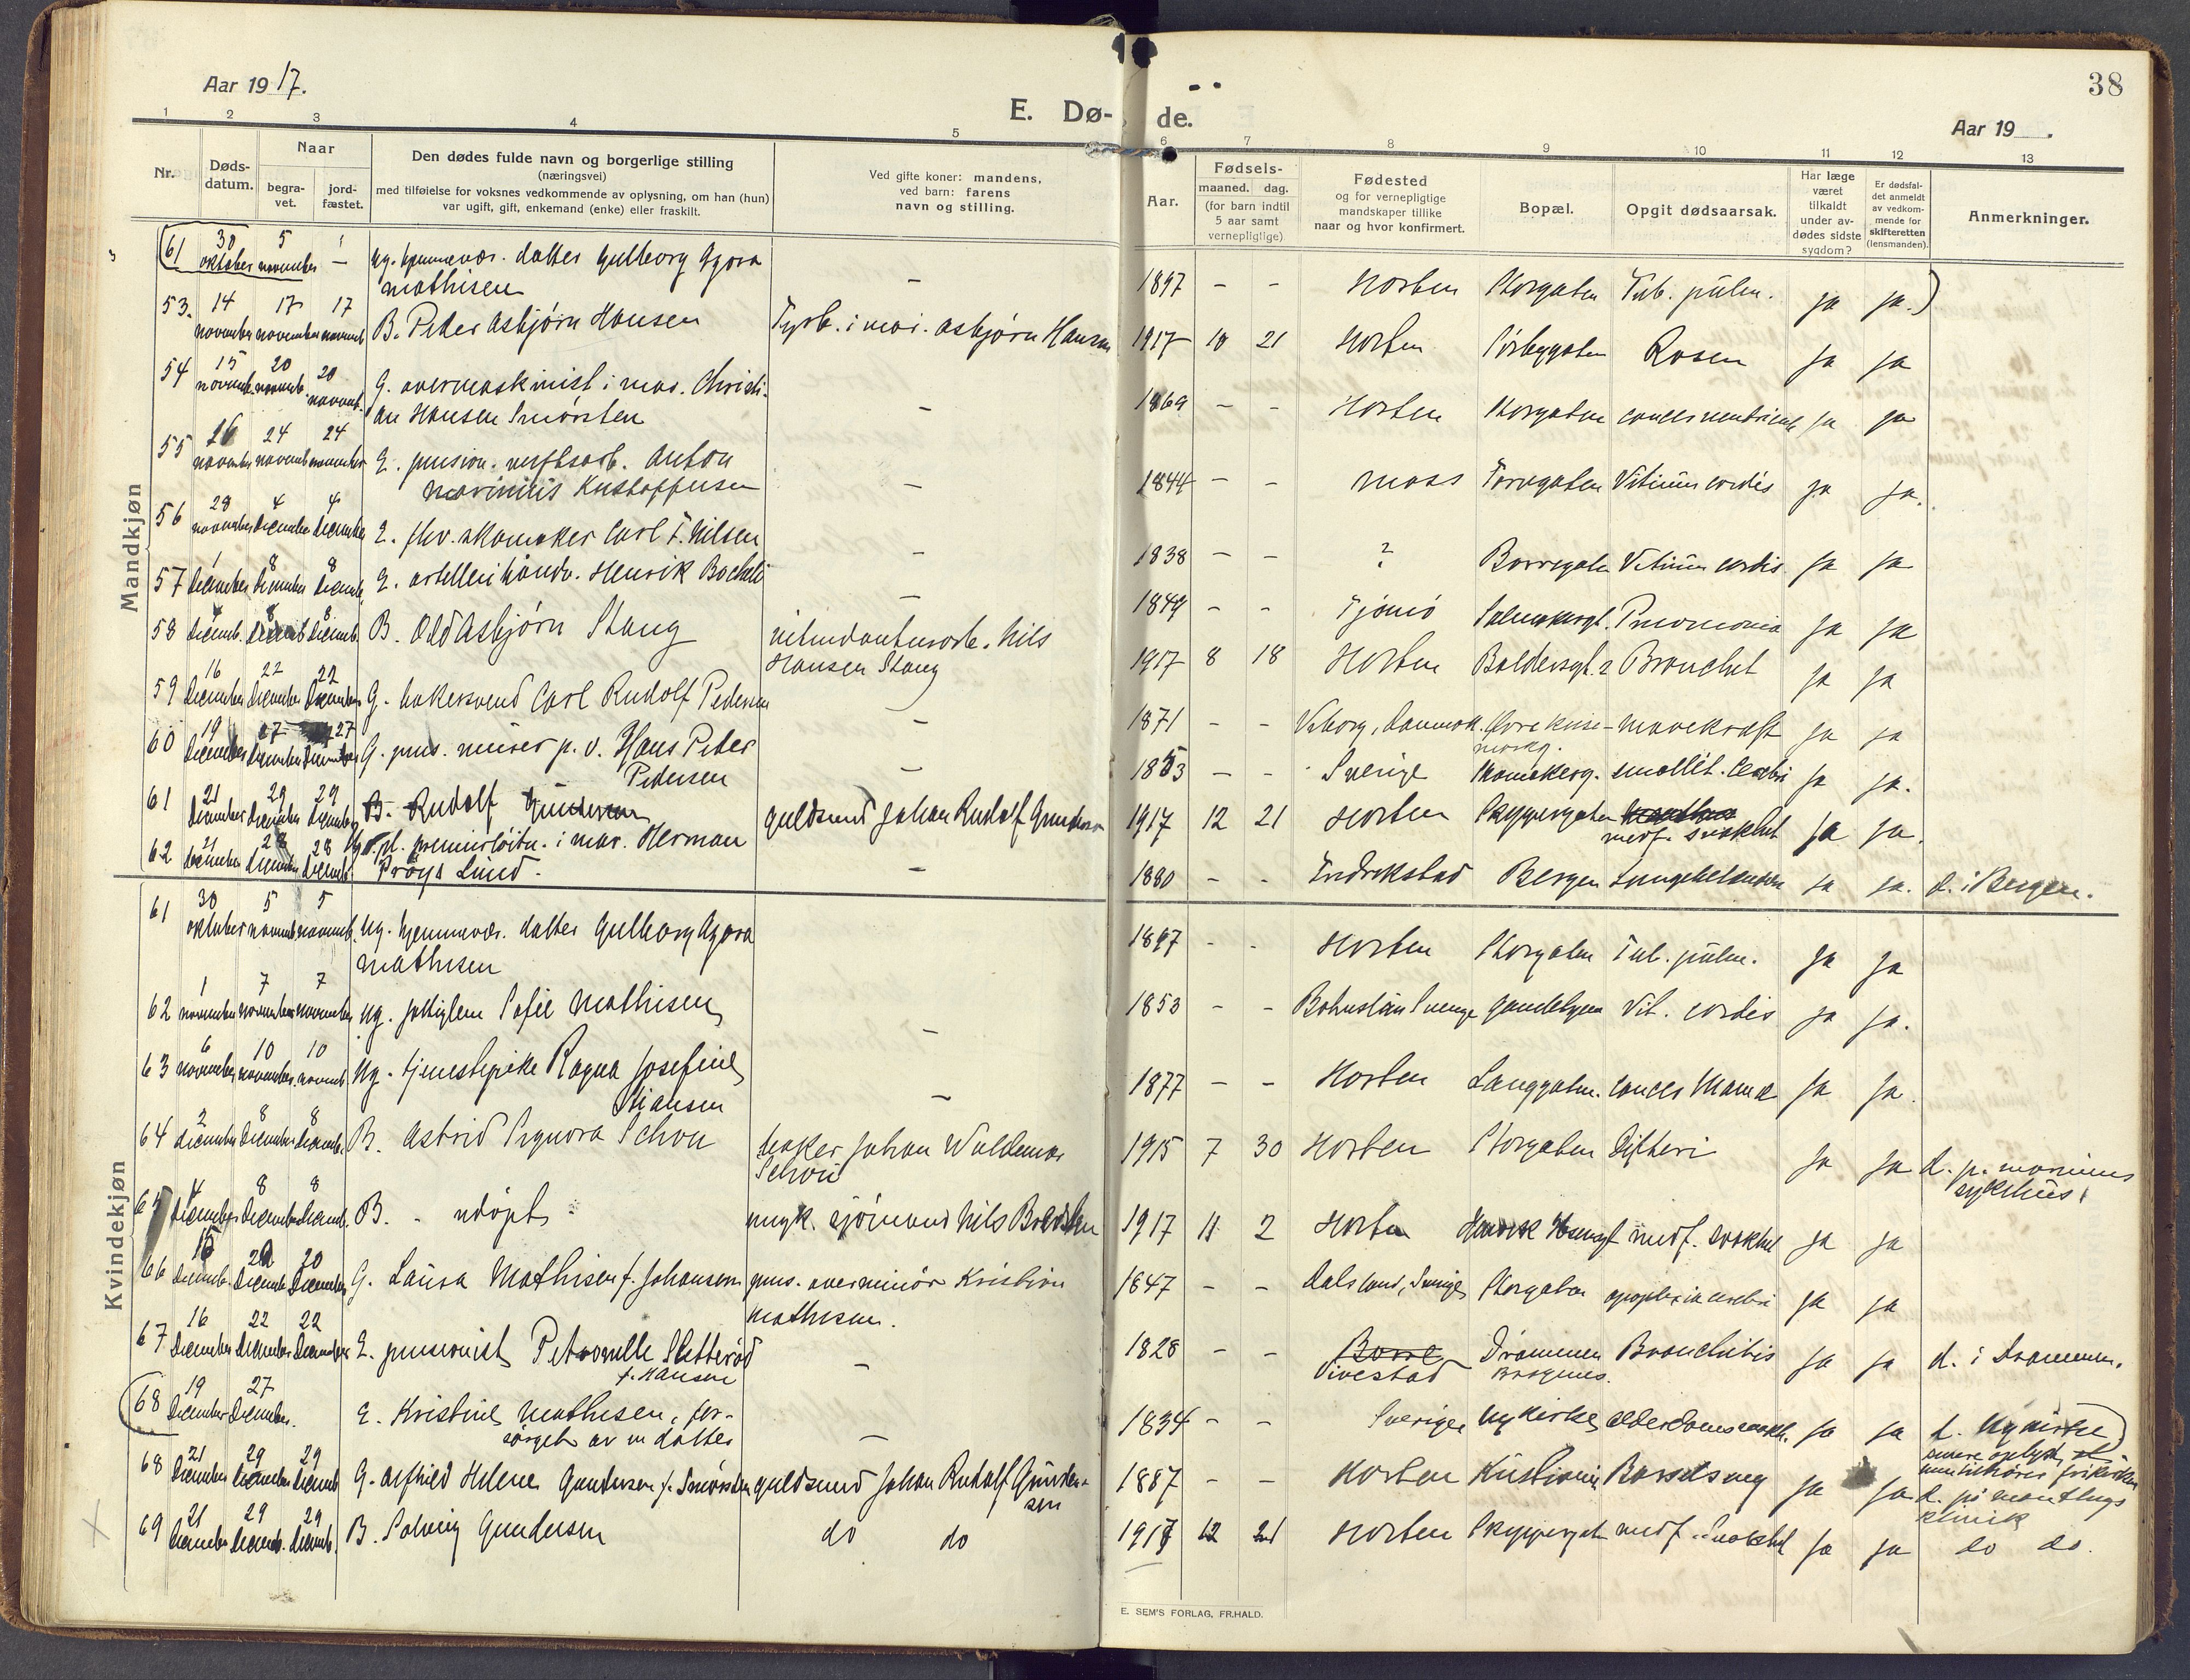 Aar 1917.
E. Dø-
de.
38
Aar 19 .
1 2 3 4 5 6 7 8 9 10 11 12 13
Nr.
Døds-
datum.
Naar
begra-
vet.
jord-
fæstet.
Den dødes fulde navn og borgerlige stilling
(næringsvei)
med tilføielse for voksnes vedkommende av oplysning, om han (hun)
var ugift, gift, enkemand (enke) eller fraskilt.
Ved gifte koner: mandens,
ved barn: farens
navn og stilling.
Aar.
Fødsels-
maaned. dag.
(for barn indtil
5 aar samt
vernepligtige)
Fødested
og for vernepligtige
mandskaper tillike
naar og hvor konfirmert.
Bopæl.
Opgit dødsaarsak.
Har læge
været
tilkaldt
under av-
dødes sidste
sygdom?
Er dødsfal-
det anmeldt
av vedkom-
mende for
skifteretten
(lensmanden).
Anmerkninger.
Mandkjøn
61 30 oktober 5 november – ug. hjemmevær. datter Gulborg Agora
Mathisen – 1897 – – Horten Storgaten Tub. pulm. ja ja.
53. 14 november 17 november 17 novemb. B. Peder Asbjørn Hansen Fyrb. i mar. Asbjørn Hansen 1917 10 21 Horten Rosen ja ja
54 15 novemb. 20 novemb. 20 novemb. G. overmaskinist i mar. Christi-
an Hansen Smørsten – 1869 – – Horten Storgaten cancer ventriculi ja ja
55 16 november 24 novemb. 24 november E. pension. verftsarb. Anton
Marinius Kristoffersen – 1844 – – Moss Torvgaten Vitium cordis ja ja.
56 28 november 4 December 4 December E. fhv. skomaker Carl F. Nilsen – 1838 – – ? Borregaten Vitium cordis ja ja
57 1 December 8 December 8 Decemb. E. artillerihåndv. Henrik – 1849 – – Tjømø Pneumonia ja ja
58 4 Decemb. 8 Decemb. 8 Decemb. B. Odd Asbjørn Stang Nils
Hansen Stang 1917 8 18 Horten Baldersgt. 2 Bronchit ja ja
59 16 December 22 December 22 December G. bakersvend Carl Rudolf Pedersen – 1871 – – Viborg, Danmark. ja ja
60 19 December 27 December 27 December G. pens. minør p. v. Hans Peder
Pedersen – 1853 – – Sverige Skomakerg. ja ja.
61 21 December 29 December 29 December B. Rudolf Gundersen guldsmed Johan Rudolf Gundersen 1917 12 21 Horten Skyppergaten
medf. svakhet ja ja.
62 21 December 28 December 28 Decemb. premierløitn. i mar. Herman
Prøys Lund. – 1880 – – Fredrikstad Bergen Lungebetændelse ja ja. d. i Bergen.
Kvindekjøn
61 30 oktober 5 novemb 5 novemb. ug. hjemmevær. datter Gulborg Agora
Mathisen 1897 – – Horten Storgaten Tub. pulm. ja ja
62 1 november 7 november 7 november ug. Sofie Mathisen – 1853 – – Bohuslän Sverige Gamlebyen Vit. cordis ja ja.
63 6 november 10 november 10 novemb. ug. tjenestepike Ragna Josefine
Stiansen – 1877 – – Horten Langgaten. cancer Mamæ ja ja.
64 2 December 8 December 8 Decemb. B. Astrid Signora Schou baker Johan Waldemar
Schou 1915 7 30 Horten Storgaten Difteri ja ja d. p. marinens
sykehus.
65 4 December 8 December 8 Decemb. B. udøpt sjømand Nils 1917 11 2 Horten medf. svakhet ja ja
66 15 Decemb. 20 Decemb. 20 December G. Laura Mathisen f. Johansen pens. overminør Kristian
Mathisen. 1847 – – Dalsland, Sverige Storgaten apoplexia cerebri ja ja
67 16 December 22 December 22 December E. pensionist Petronelle Sletterød
f. Hansen – 1828 – – Borre
Vivestad Drammen Bronchitis ja ja d. i Drammen.
68 19 December 27 December. E. Kristine Mathisen, for-
sørget av en datter – 1834 – – Sverige Nykirke ja ja d. Nykirke
68 21 December 29 December 29 Decemb G. Asfrid Helene Gundersen f. Smørsten guldsmed Johan Rudolf Gunder-
sen 1887 – – Horten Kristiania Barselseng ja ja
klinik
69 21 December 29 Decemb. 29 Decemb. B. Solveig Gundersen do do 1917 12 21 Horten Skyppergaten medf. svakhet ja ja do do.
E. SEM'S FORLAG, FR.HALD.